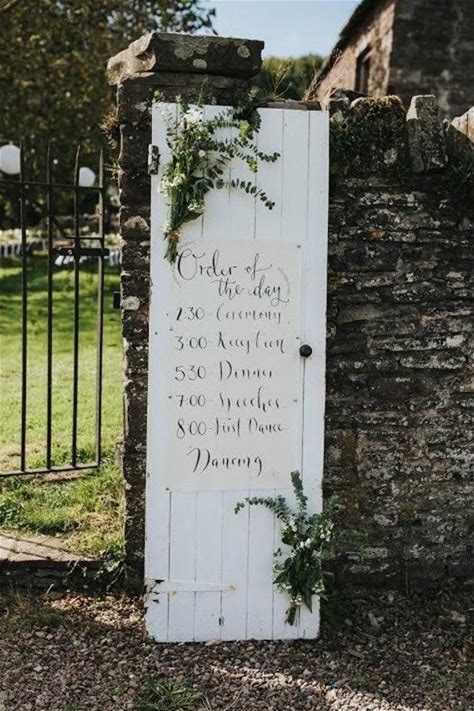 Order of
the day
2:30 - Ceremony
3:00 - Reception
5:30 - Dinner
7:00 - Speeches
8:00 - First Dance
Dancing